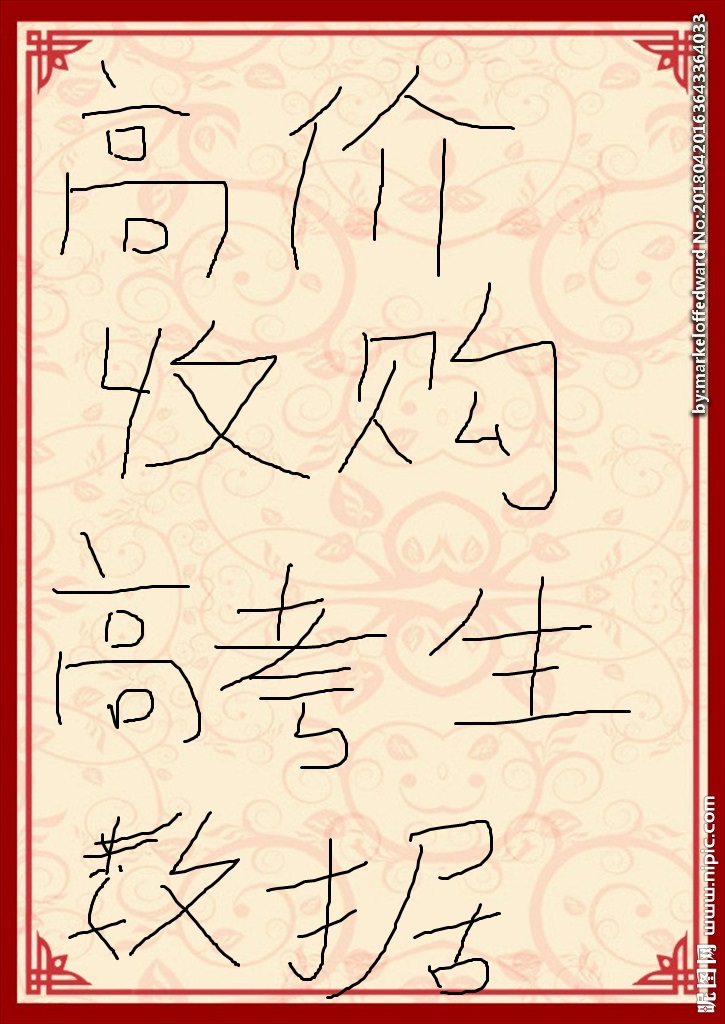 高价
收购
高考生
数据
by:markeloffedward No:20180420163643364033
昵图网 www.nipic.com